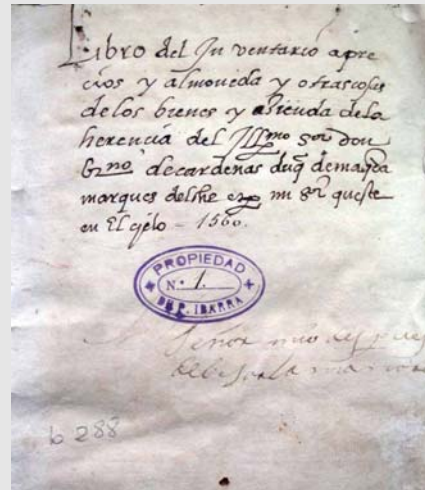 Libro del Inventario apre
cios y almoneda y otras cosas
de los bienes y azienda dela
herencia del Illmo Sor don
brno decardenas duq demaqda
marques delhe etc mi Sor queste
en El çielo - 1560.
PROPIEDAD
N.º 1.
DE P. IBARRA
Señor mio
b 288